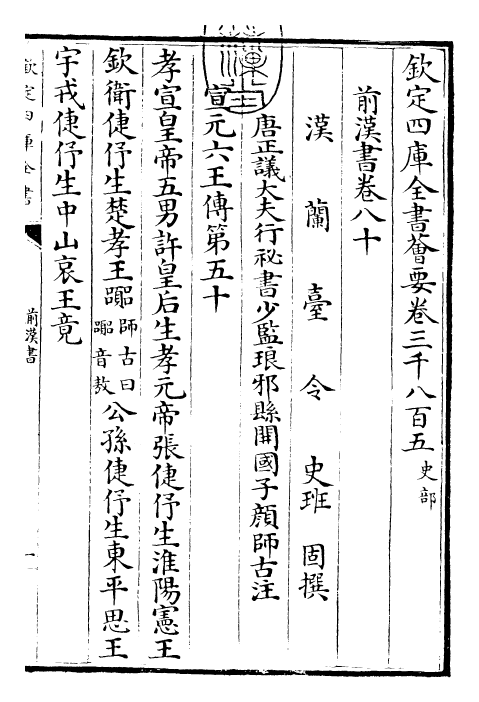 欽定四庫全書薈要卷三千八百五 史部
前漢書卷八十
漢蘭臺令史班固撰
唐正議大夫行祕書少監琅邪縣開國子顏師古注
宣元六王傳第五十
孝宣皇帝五男許皇后生孝元帝張倢伃生淮陽憲王
欽衛倢伃生楚孝王嚻師古曰嚻音敖公孫倢伃生東平思王
宇戎倢伃生中山哀王竟
欽定四庫全書
前漢書
一